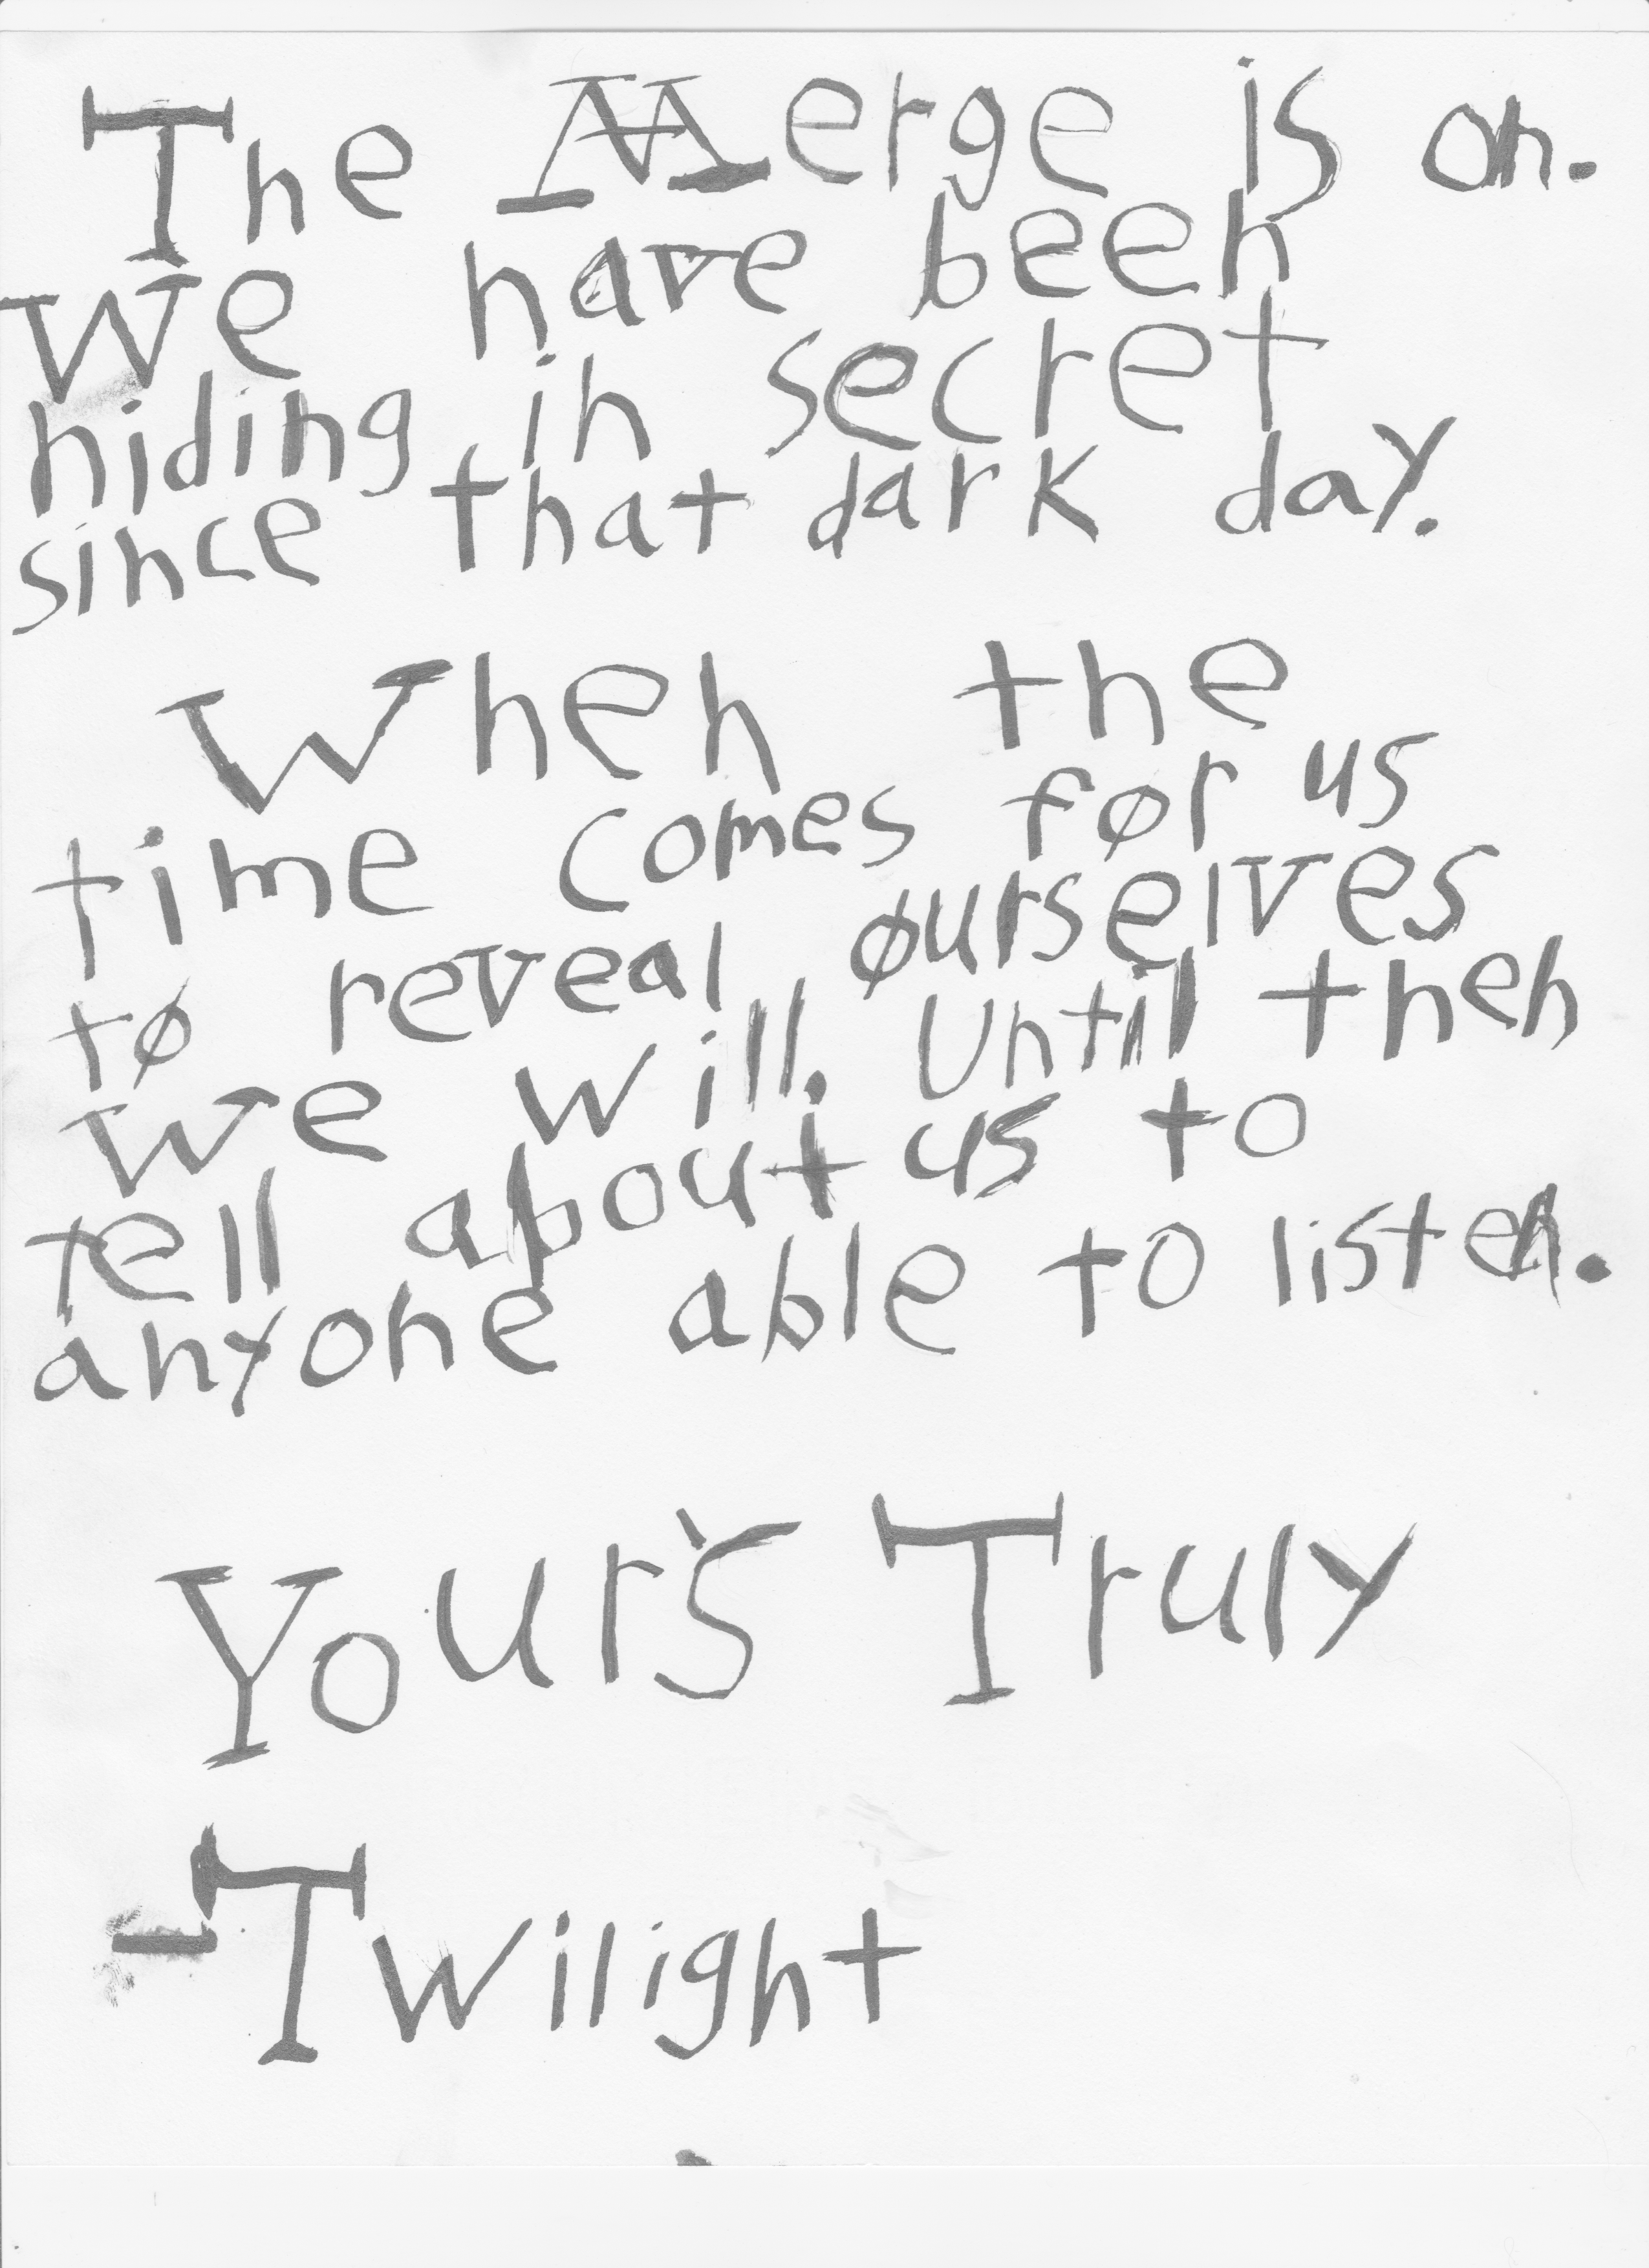 The Merge is on.
We have been
hiding in secret
since that dark day.
When the
time comes for us
to reveal ourselves
we will. Until then
tell about us to
anyone able to listen.
Your's Truly
-Twilight